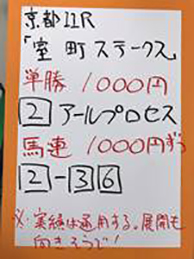 京都11R
「室町ステークス」
単勝 1000円
2 アールプロセス
馬連 1000円ずつ
2-36
※実績は通用する。展開も
向きそうで!